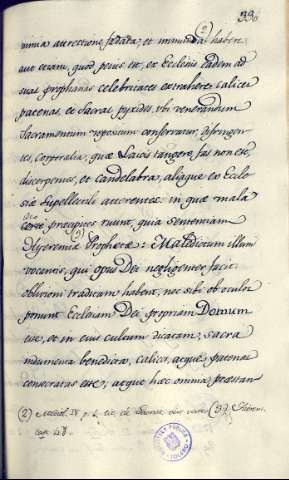 330
nimia auctione fœdata, et immunda (2) habere
aut etiam, quod peius est, ex Ecclesiis eadem ad
suas prophanas celebritates extrahere: calices
patenas, et Sacras pyxides, ubi venerandum
Sacramentum repositum conservatur, disfringen-
tes, corporalia, quæ Laicis tangere fas non est,
discerpentes, et candelabra, aliaque ex Eccle-
siæ supellectili auferentes: in quæ mala
præcipites ruunt, quia sententiam
Hyeremiæ Prophetæ: Maledictum illum
vocantis, qui opus Dei negligenter facit
oblivioni traditam habent, nec sibi ob oculos
ponunt Ecclesiam Dei propriam Domum
esse, et in eius cultum dicatam, sacra
indumenta benedicta, calices, atque patenas
consecratas esse; atque hæc omnia, præstan-
(2) IV p. 2. tit. de (3) Hierem.
cap. 48.
BIBLIOTECA PUBLICA
TOLEDO